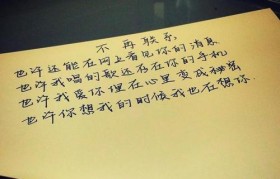 不再联系
也许还能在网上看见你的消息
也许我唱的歌还存在你的手机
也许我爱你埋在心里变成秘密
也许你想我的时候我也在想你